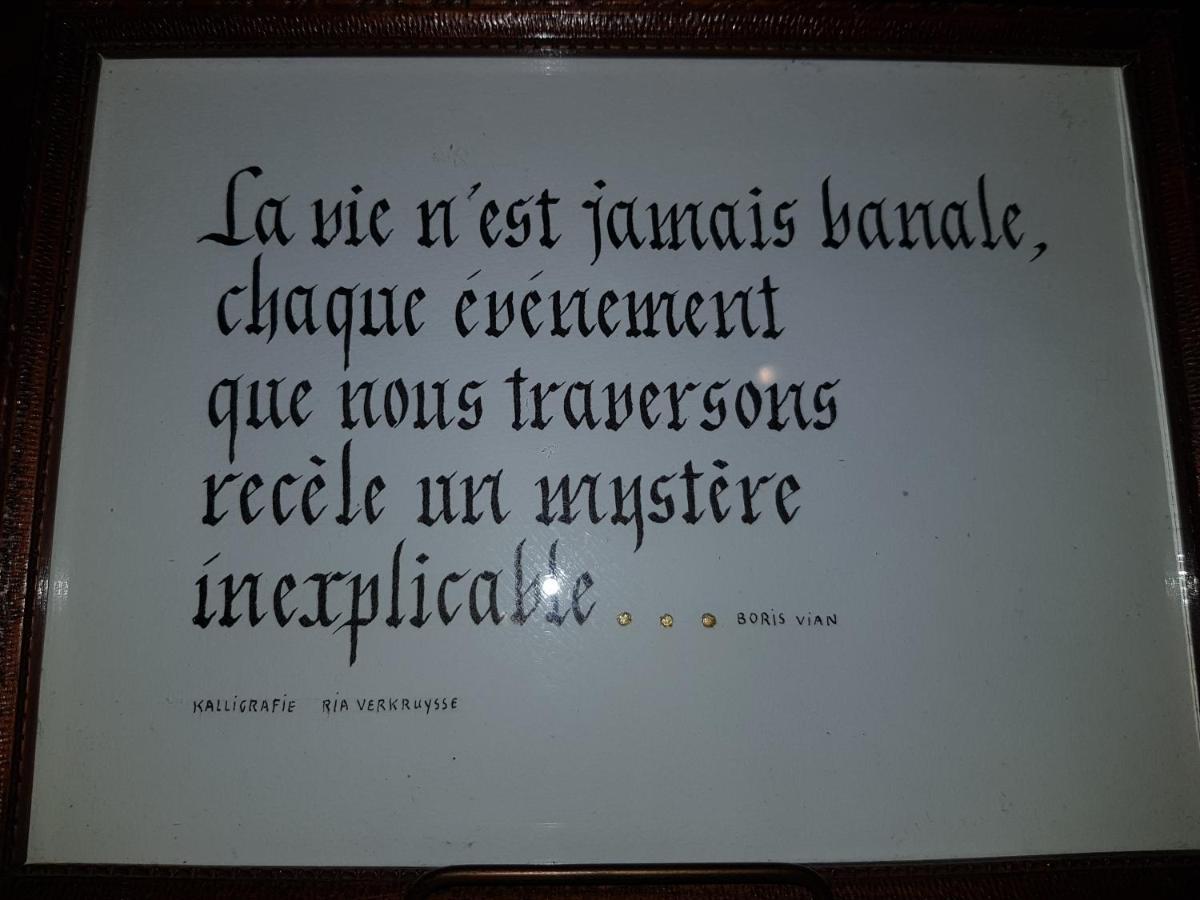 La vie n'est jamais banale,
chaque événement
que nous traversons
recèle un mystère
inexplicable... BORIS ViAN
KALLiGRAFiE RiA VERKRUYSSE